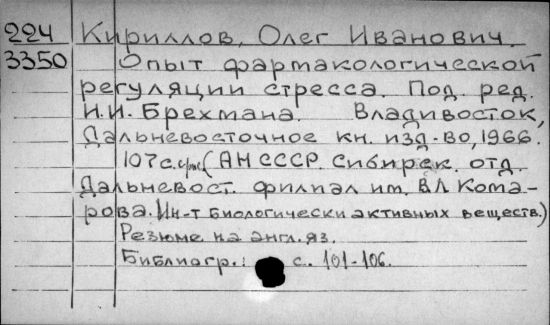 224 Кириллов, Олег Иванович.
3350 Опыт фармакологической
регуляции стресса. Под. ред.
И.И. Брехмана. Владивосток,
Дальневосточное кн. изд-во, 1966.
107 с. (АН СССР. Сибирск. отд.
Дальневост. филиал им. В.Л Кома-
рова. Ин-т биологически активных веществ.)
Резюме на англ. яз.
Библиогр.: с. 101-106.